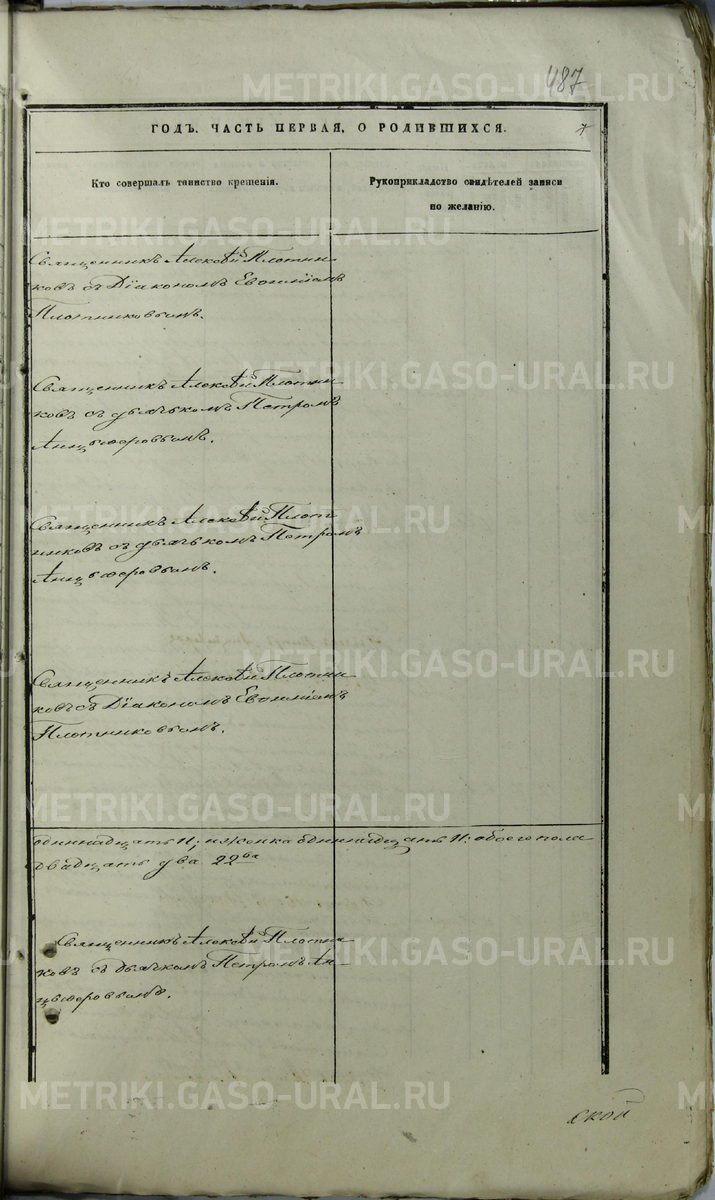 487
ГОДЪ. ЧАСТЬ ПЕРВАЯ, О РОДИВШИХСЯ.
7
Кто совершалъ таинство крещенія.
Рукоприкладство свидѣтелей записи
по желанію.
Священникъ Алексѣй Плотни
ковъ съ Діакономъ Евѳиміемъ
Плотниковымъ.
Священникъ Алексѣй Плотни
ковъ съ дьячькомъ Петромъ
Анцыферовымъ.
Священникъ Алексѣй Плот
никовъ съ дьячькомъ Петромъ
Анцыферовымъ.
Священникъ Алексѣй Плотни
ковъ съ Діакономъ Евѳиміемъ
Плотниковымъ.
одиннадцать 11, и женска одиннадцать 11: обоего пола
двадцать два 22
Священникъ Алексѣй Плотни
ковъ съ Дьячкомъ Петромъ Ан
цыферовымъ.
ской
METRIKI.GASO-URAL.RU